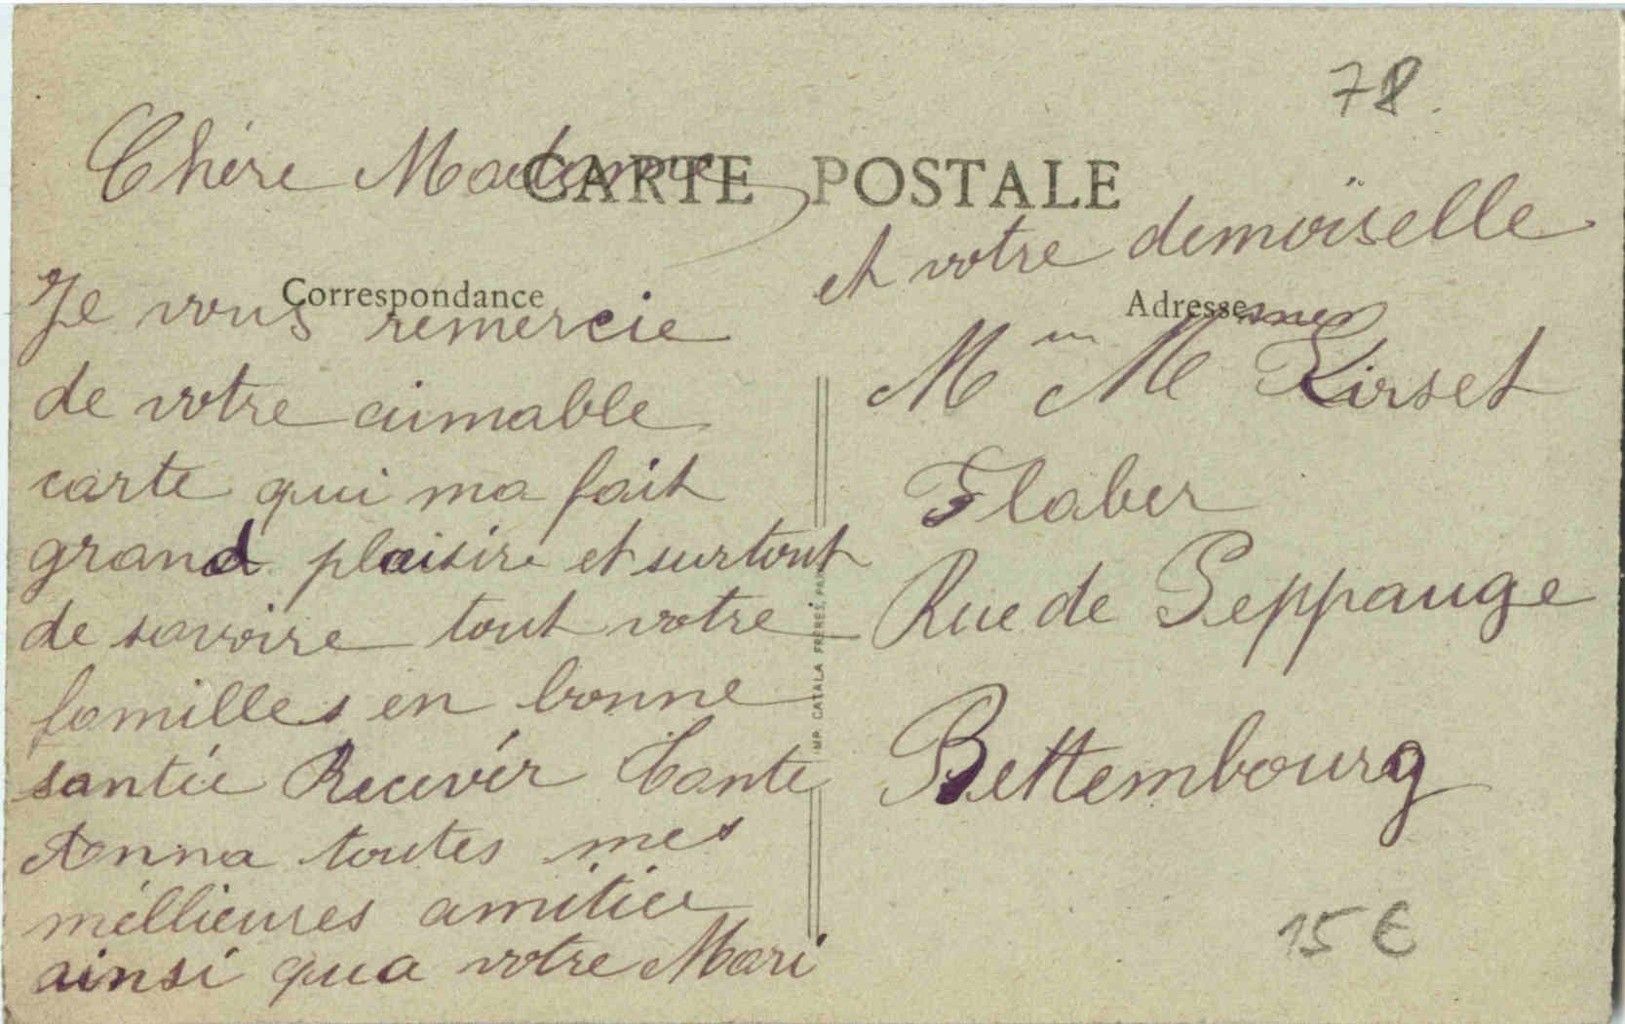 78.
Chère Madame
CARTE POSTALE
et votre demoïselle
Correspondance
Adresse
Je vous remercie
de votre aimable
carte qui ma fait
grand plaisire et surtout
de savoire tout votre
familles en bonne
santée Recevér Tante
Anna toutes mes
méllieures amitiée
ainsi qua votre Mari
M M Kirset
Flaber
Rue de Peppange
Bettembourg
IMP. CATALA FRERES, PARIS
15 €